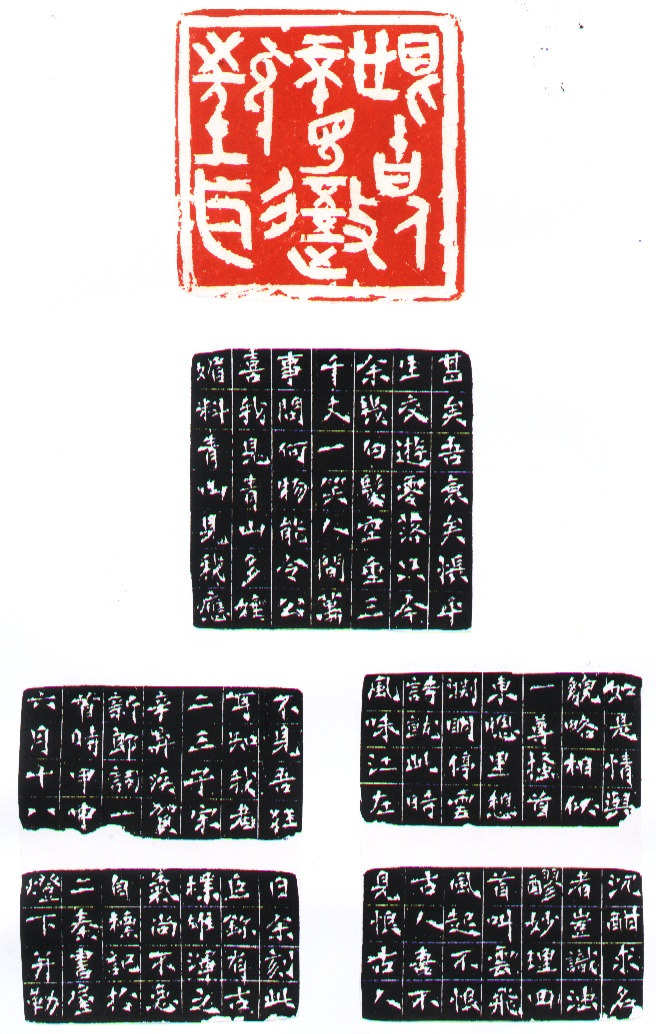 甚矣吾衰矣悵平
生交遊零落只今
余幾白髮空垂三
千丈一笑人間萬
事問何物能令公
喜我見青山多嫵
媚料青山見我應
如是情與
貌略相似
一尊搔首
東窗里想
淵明停雲
詩就此時
風味江左
沉酣求名
者豈識濁
醪妙理回
首叫雲飛
風起不恨
古人吾不
見恨古人
不見吾狂
耳知我者
二三子宋
辛棄疾賀
新郎詞一
首時甲申
六月十八
日余刻此
有古
樸雄渾之
氣尚不惡
自標記於
二秦書屋
燈下并勒